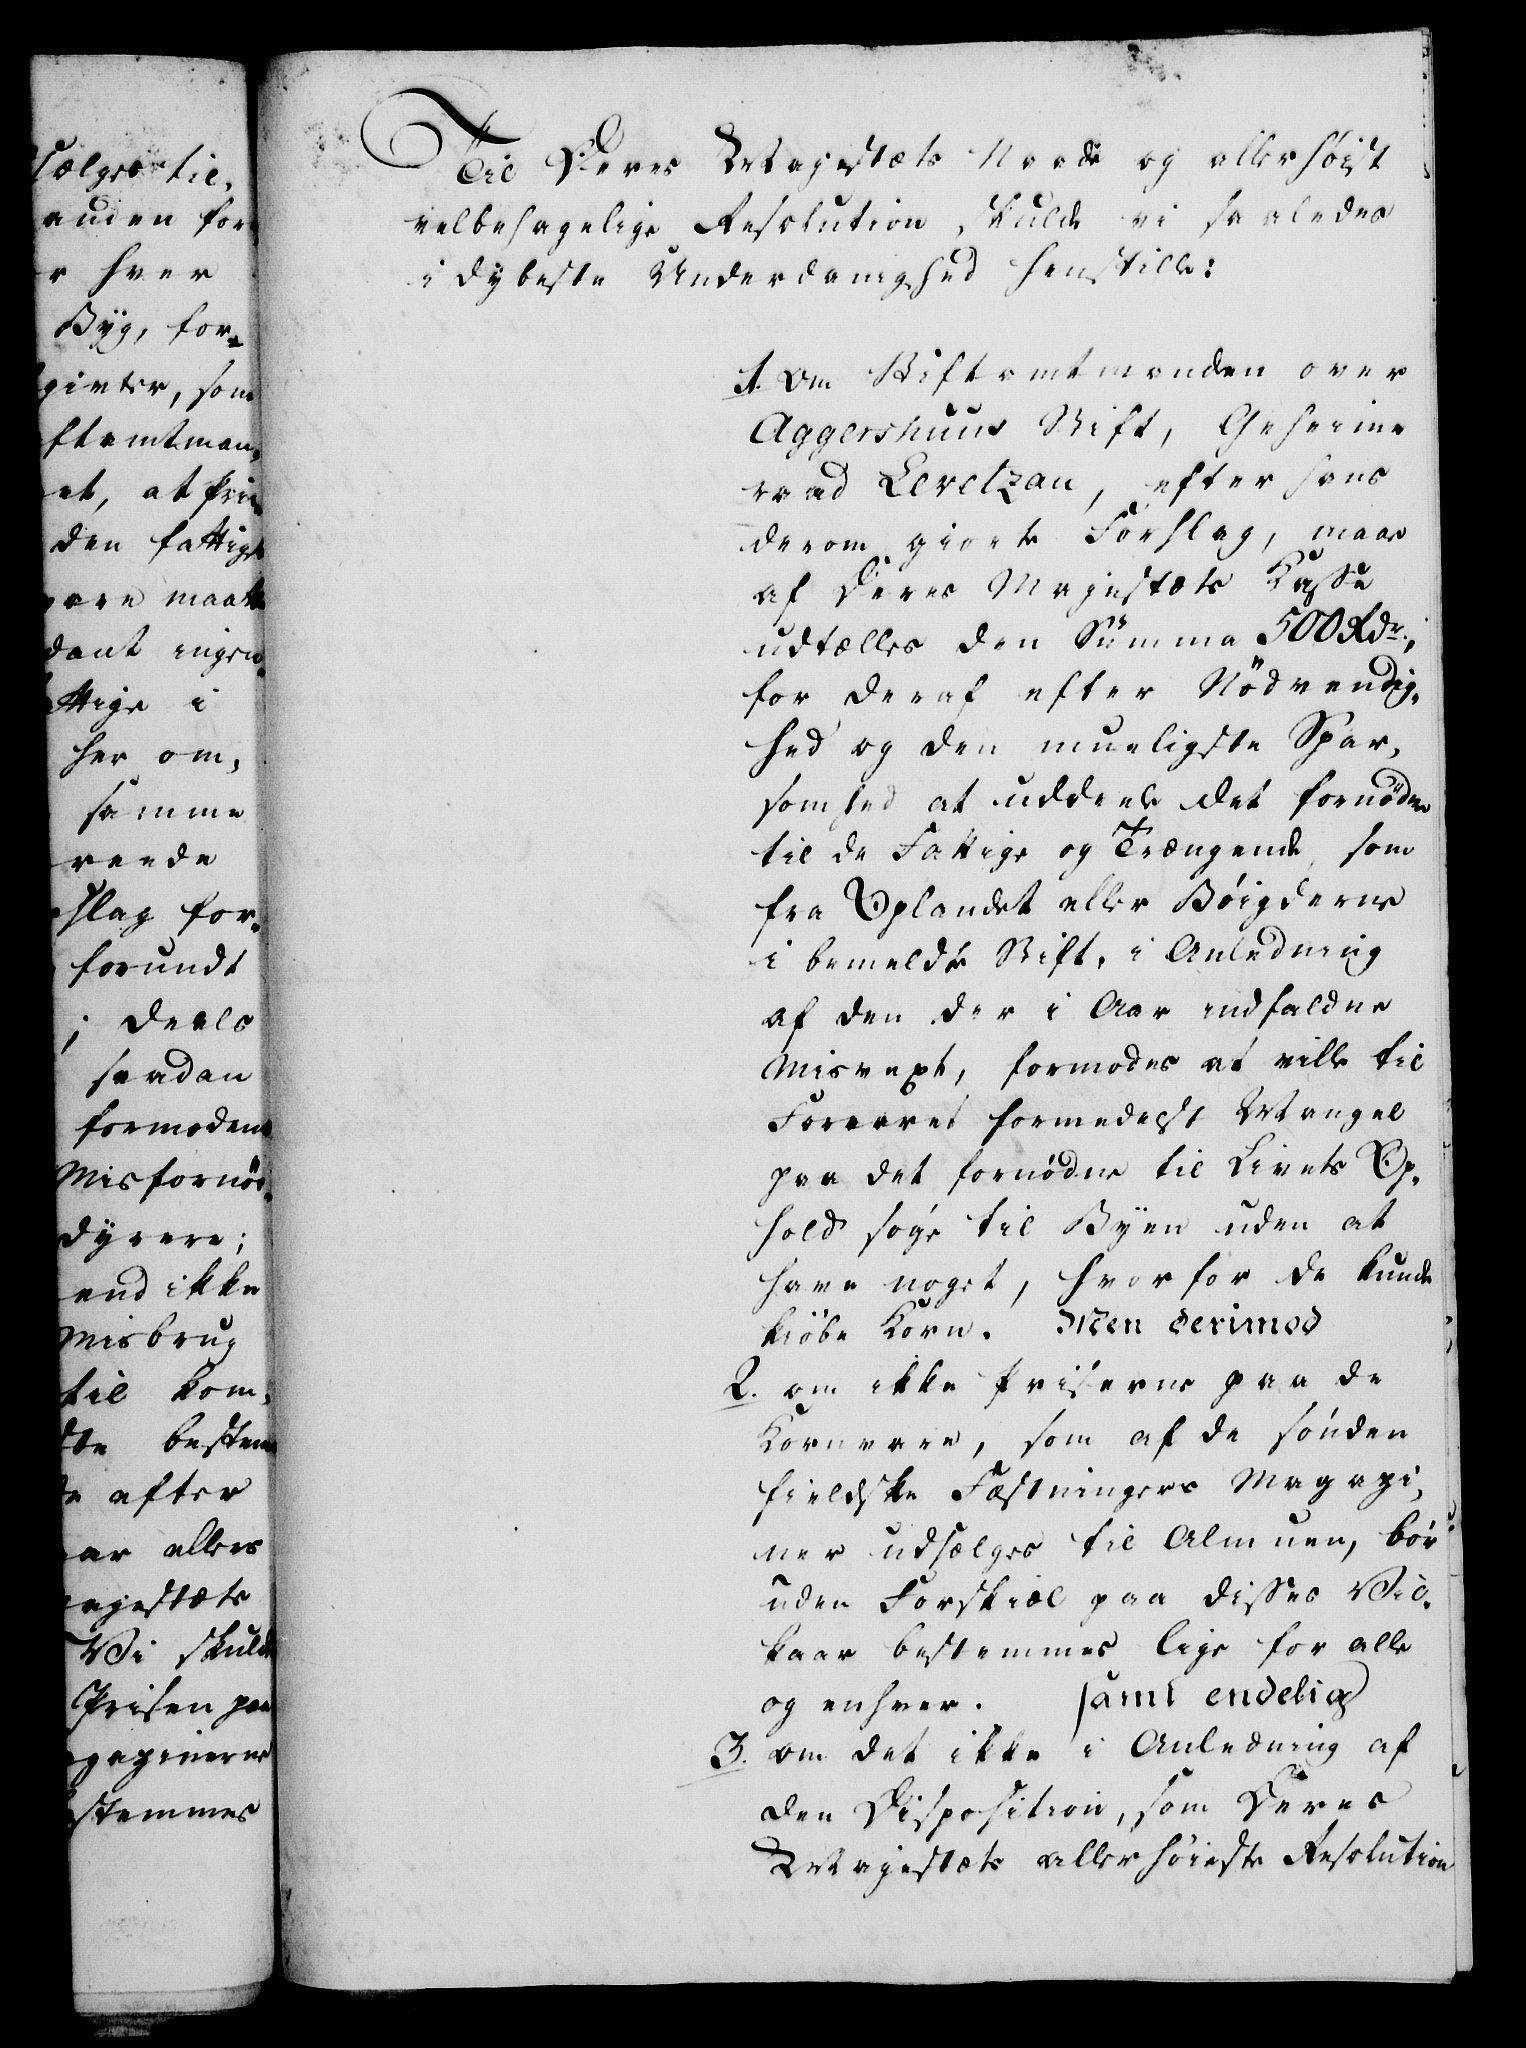 sælges til,
anden for-
r hver
Byg, for-
givter, som
ftamtman-
et, at Pri-
den fattige
vare maatte
dant ingen
ttige i
her om,
samme
reede
slag for-
forundt
; deels
saadan
formodent
Misfornöi-
dyrere;
end ikke
Misbrug
til kom-
tte bestem
de efter
ar allers
ajestæts
Vi skulde
Prisen paa
gazinerne
stemmes
Til Deres Majestæts Naade og allerhöist
velbehagelige Resolution, skulde vi saaledes
i dybeste Underdanighed henstille:
1. om Stiftamtmanden over
Aggershuus Stift, Geheime
raad Levetzau, efter hans
derom giorte Forslag, maae
af Deres Majestæts Kasse
udtælles den Summa 500 Rdr.,
for deraf efter Nödvendig-
hed og den mueligste Spar-
somhed at uddeele det fornödne
til de Fattige og Trængende, som
fra Oplandet eller Böigderne
i bemeldte Stift, i Anledning
af den der i Aar indfaldne
Misvext, formodes at ville til
Foraaret formedelst Mangel
paa det fornödne til Livets Op-
hold söge til Byen uden at
have noget, hvorfor de kunde
kiöbe Korn. Men derimod
2. om ikke Priserne paa de
Kornvare, som af de sönden
fieldske Fæstningers Magazi-
ner udsælges til Almuen, bör
uden Forskiæl paa disses Vil-
kaar bestemmes lige for alle
og enhver. samt endelig
3. om det ikke i Anledning af
den Disposition, som Deres
Majestæts allerhöieste Resolution